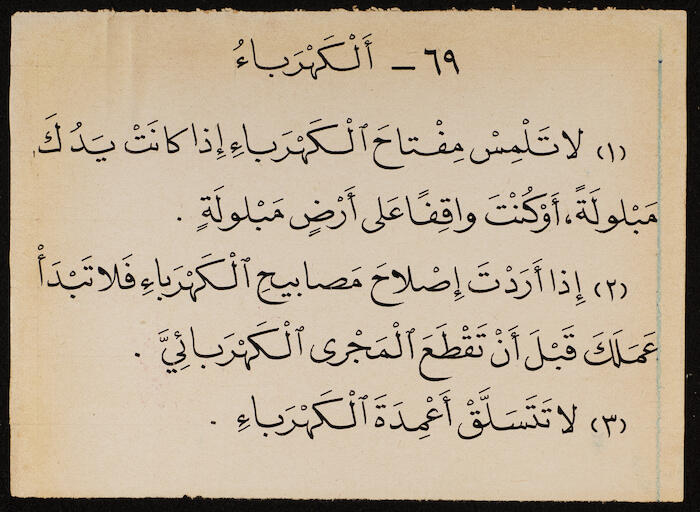 ٦٩ - أَلْكَهْرَباءُ
(١) لا تَلْمِسْ مِفْتاحَ ٱلْكَهْرَباءِ إِذا كانَتْ يَدُكَ
مَبْلولَةً، أَوْ كُنْتَ واقِفًا عَلى أَرْضٍ مَبْلولَةٍ .
(٢) إِذا أَرَدْتَ إِصْلاحَ مَصابيحِ ٱلْكَهْرَباءِ فَلا تَبْدَأْ
عَمَلَكَ قَبْلَ أَنْ تَقْطَعَ ٱلْمَجْرى ٱلْكَهْرَبائِيَّ .
(٣) لا تَتَسَلَّقْ أَعْمِدَةَ ٱلْكَهْرَباءِ .